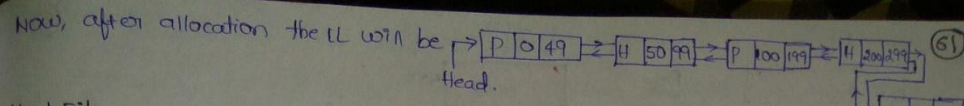 Now, after allocation the LL will be → P 0 49 ⇄ H 50 99 ⇄ P 100 199 ⇄ H 200 299
61
Head.